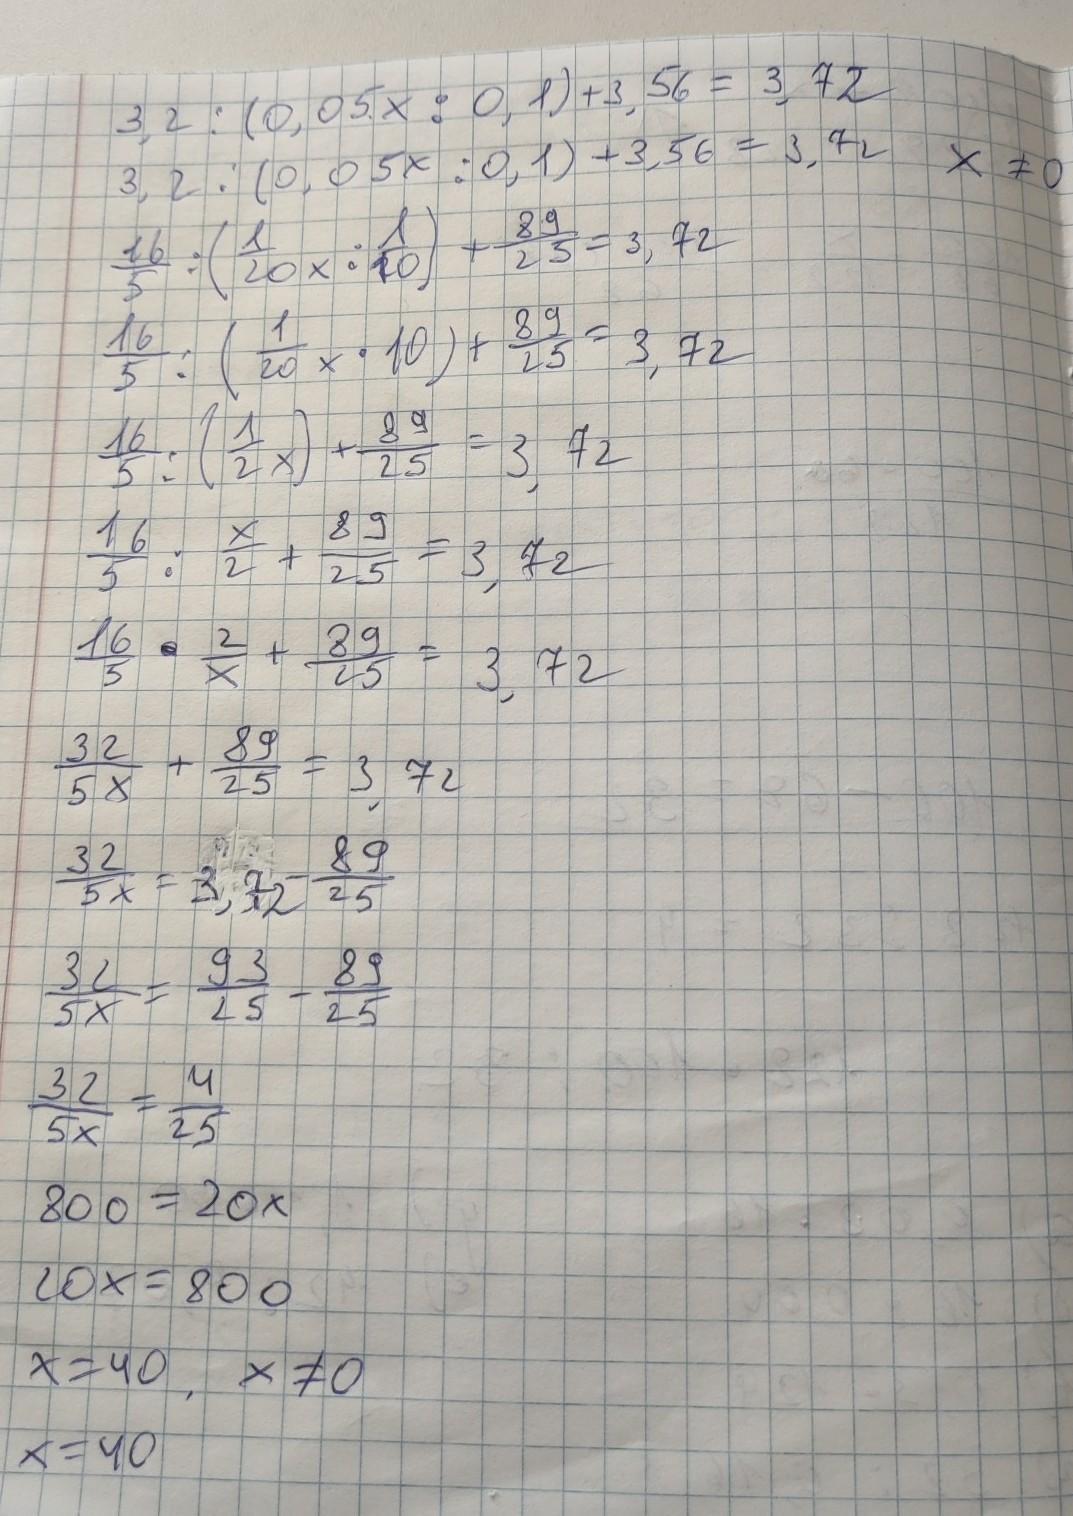 3,2 : (0,05x : 0,1) + 3,56 = 3,72
3,2 : (0,05x : 0,1) + 3,56 = 3,72 x ≠ 0
16/5 : (1/20 x : 1/10) + 89/25 = 3,72
16/5 : (1/20 x · 10) + 89/25 = 3,72
16/5 : (1/2 x) + 89/25 = 3,72
16/5 : x/2 + 89/25 = 3,72
16/5 · 2/x + 89/25 = 3,72
32/5x + 89/25 = 3,72
32/5x = 3,72 - 89/25
32/5x = 93/25 - 89/25
32/5x = 4/25
800 = 20x
20x = 800
x = 40, x ≠ 0
x = 40